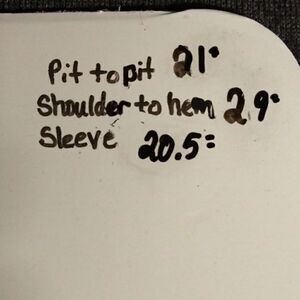 Pit to pit 21"
Shoulder to hem 29"
Sleeve 20.5"